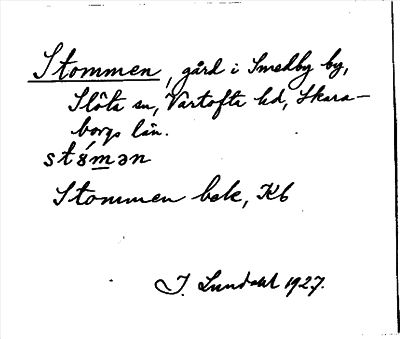 Stommen, gård i Smedby by,
Slöta sn, Vartofta hd, Skara-
borgs län.
stómən
Stommen bek, Kb
I. Lundahl 1927.